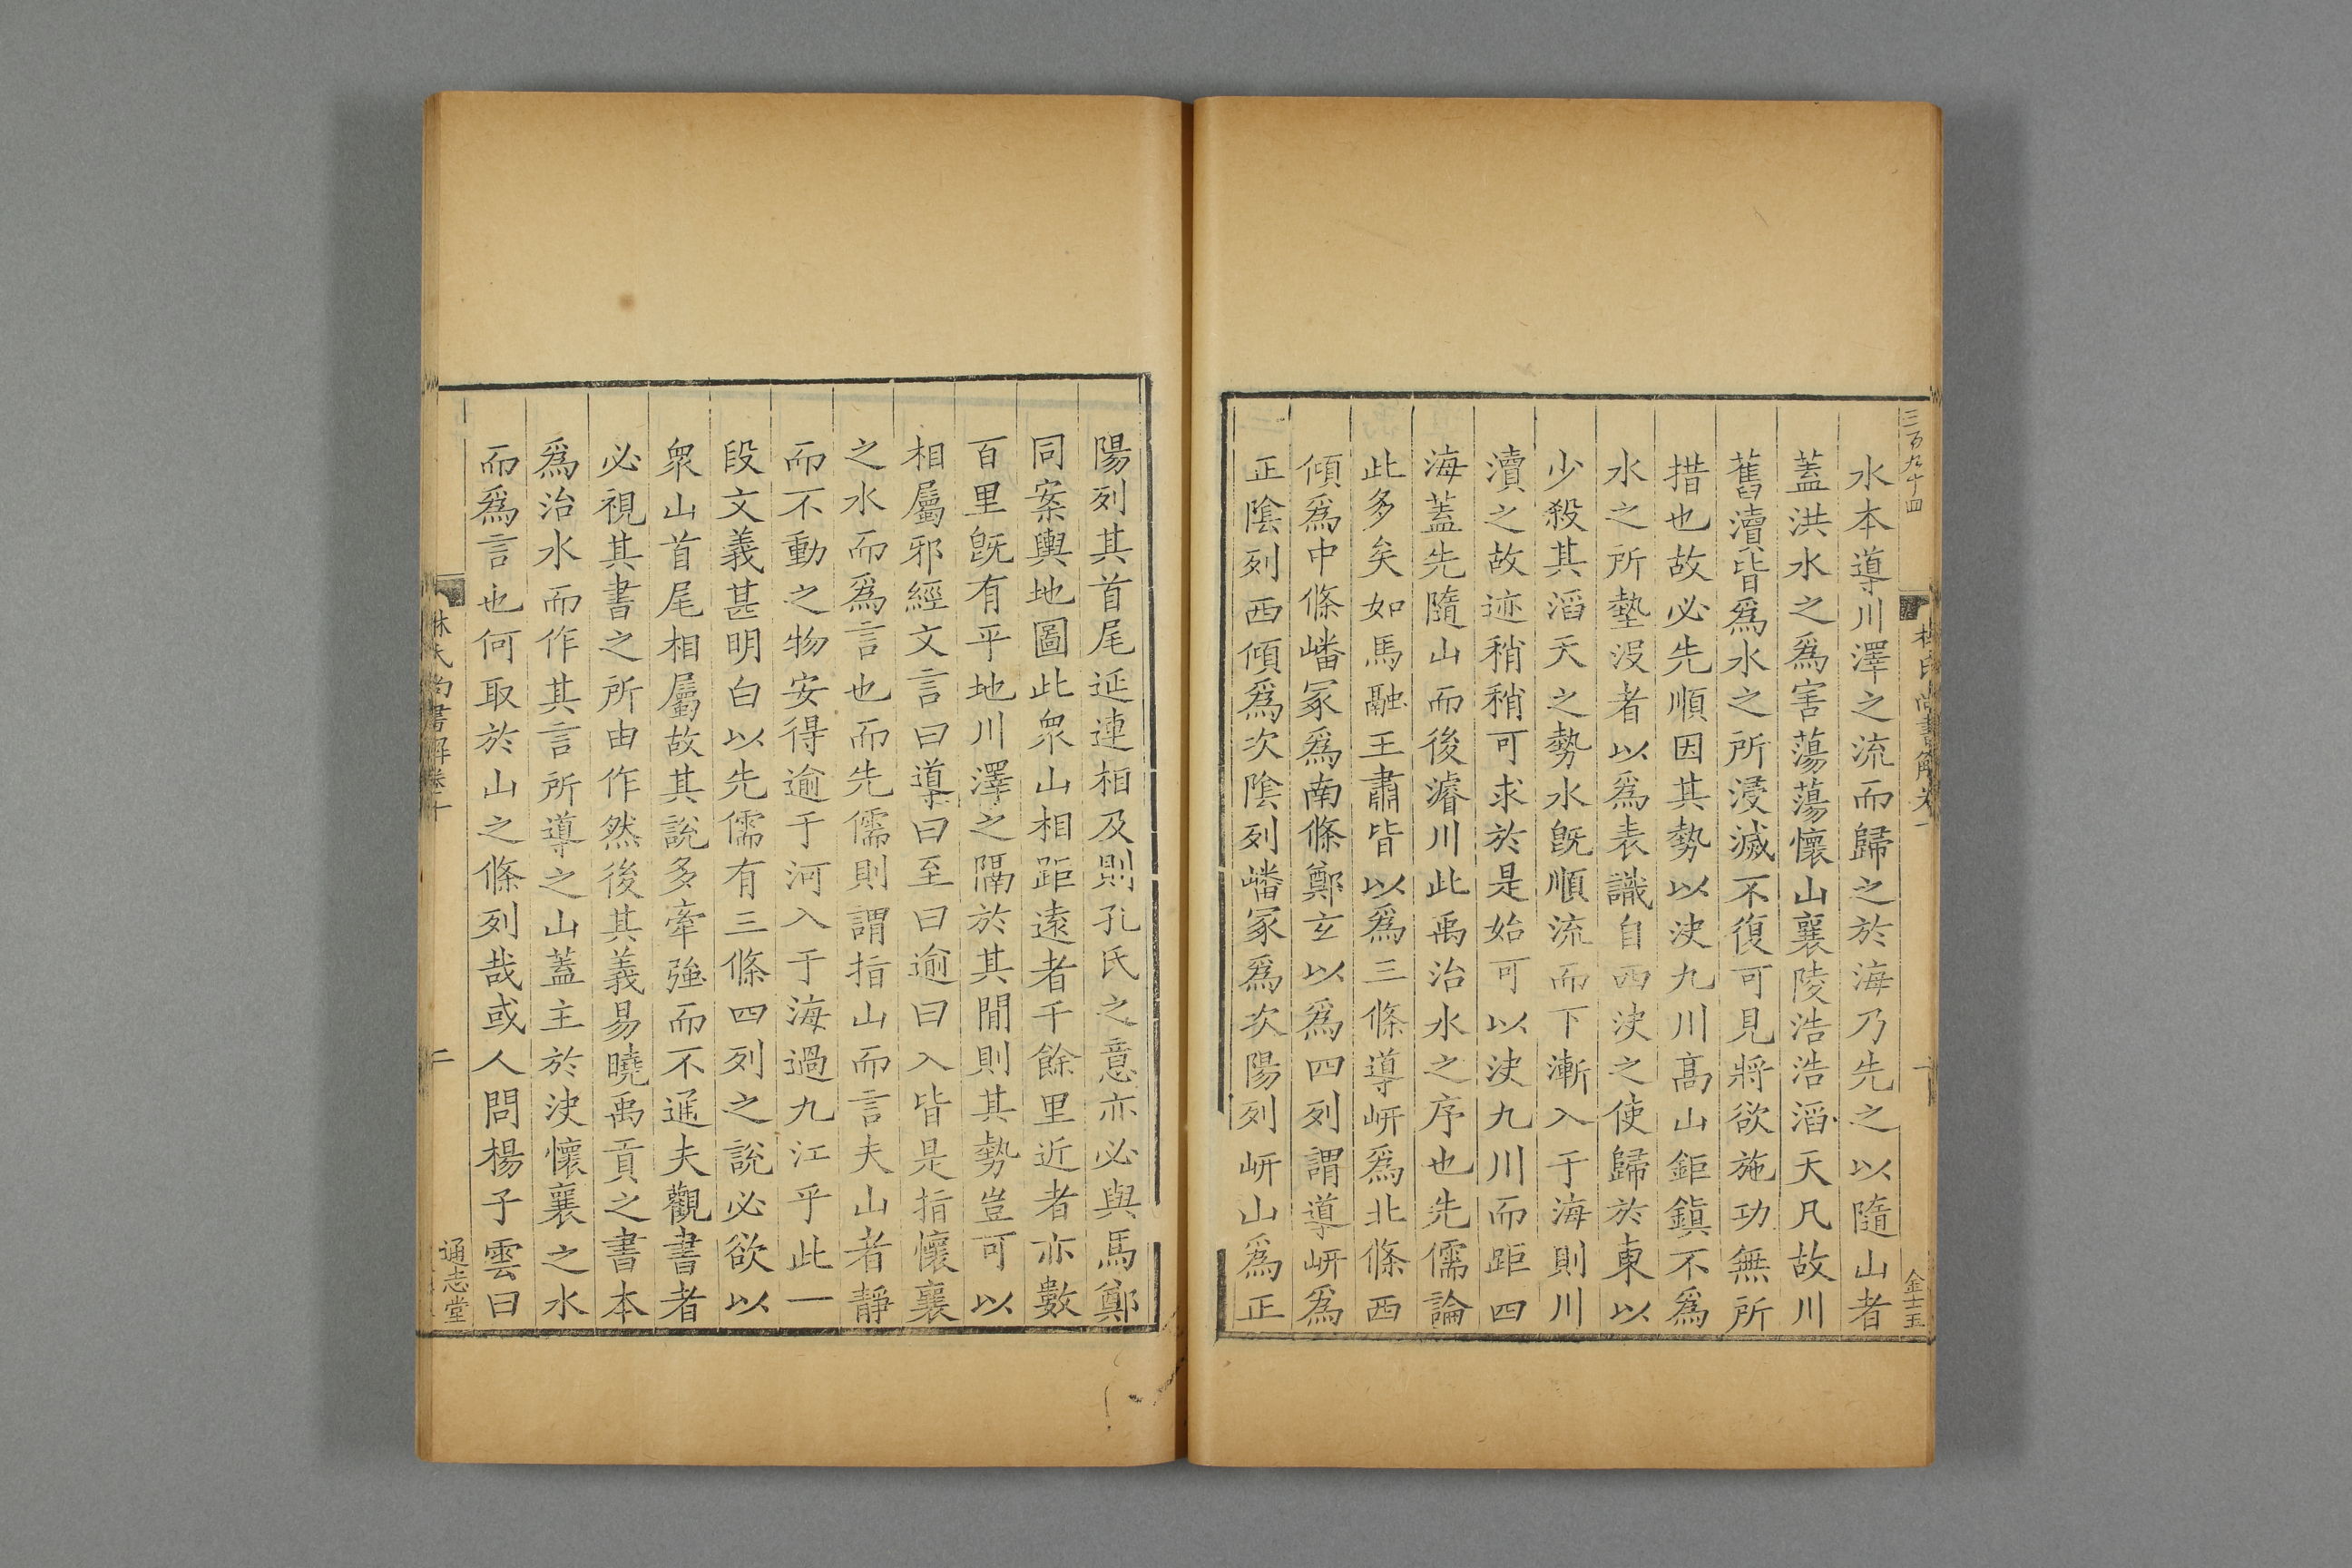 三百九十四
金士玉
水本導川澤之流而歸之於海乃先之以隨山者
蓋洪水之爲害蕩蕩懷山襄陵浩浩滔天凡故川
舊瀆皆爲水之所浸滅不復可見將欲施功無所
措也故必先順因其勢以決九川髙山鉅鎮不爲
水之所墊沒者以爲表識自西決之使歸於東以
少殺其滔天之勢水旣順流而下漸入于海則川
瀆之故迹稍稍可求於是始可以決九川而距四
海蓋先隨山而後濬川此禹治水之序也先儒論
此多矣如馬融王肅皆以爲三條導岍爲北條西
傾爲中條嶓冢爲南條鄭玄以爲四列謂導岍爲
正陰列西傾爲次陰列嶓冢爲次陽列岍山爲正
陽列其首尾延連相及則孔氏之意亦必與馬鄭
同案輿地圖此衆山相距遠者千餘里近者亦數
百里旣有平地川澤之隔於其間則其勢豈可以
相屬邪經文言曰導曰至曰逾曰入皆是指懷襄
之水而爲言也而先儒則謂指山而言夫山者靜
而不動之物安得逾于河入于海過九江乎此一
段文義甚明白以先儒有三條四列之說必欲以
衆山首尾相屬故其說多牽強而不通夫觀書者
必視其書之所由作然後其義易曉禹貢之書本
爲治水而作其言所導之山蓋主於決懷襄之水
而爲言也何取於山之條列哉或人問楊子雲曰
林氏尚書解卷十
二
通志堂